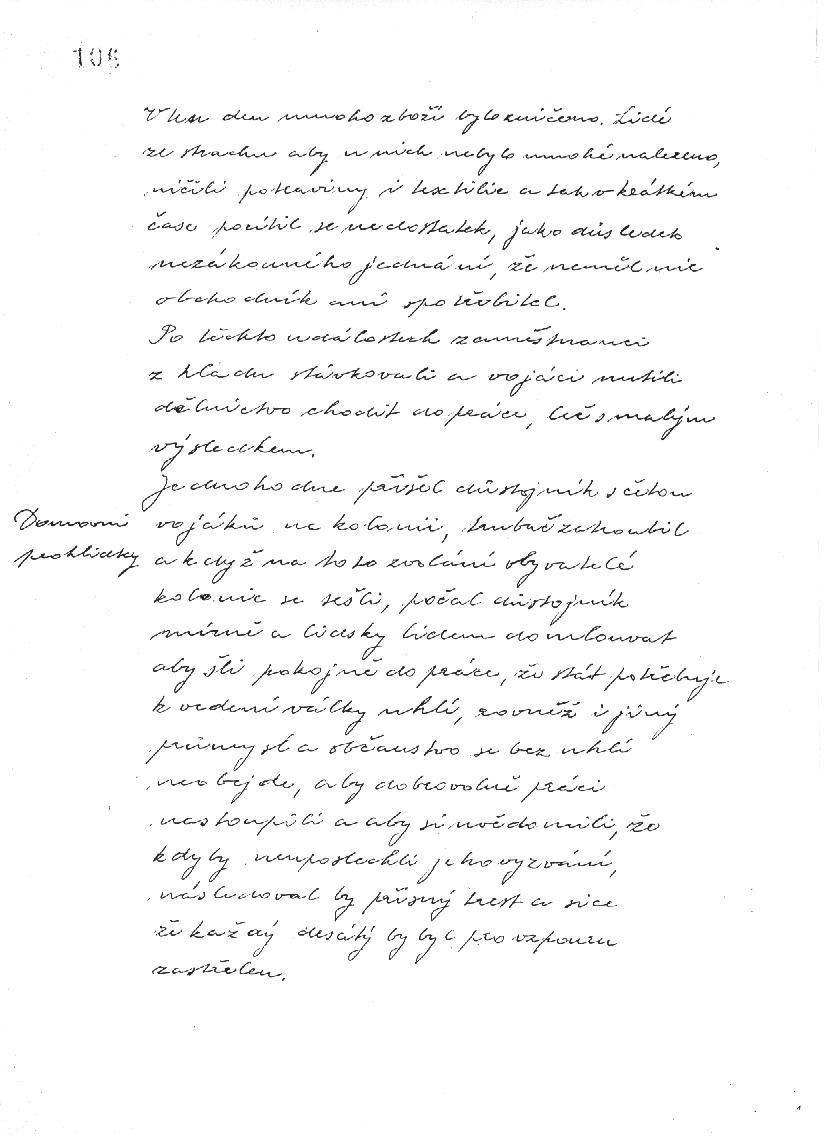 106
V ten den mnoho zboží bylo zničeno. Lidé
ze strachu aby u nich nebylo mnohé nalezeno,
ničili potraviny i textilie a tak v krátkém
čase pocítil se nedostatek, jako důsledek
nezákonného jednání, že neměl nic
obchodník ani spotřebitel.
Po těchto událostech zaměstnanci
z hladu stávkovali a vojáci nutili
dělnictvo chodit do práce, leč s malým
výsledkem.
Jednoho dne přišel důstojník s četou
Domovní
prohlídky
vojáků na kolonii, trubač zatroubil
a když na toto zvolání obyvatelé
kolonie se sešli, počal důstojník
mírně a lidsky lidem domlouvat
aby šli pokojně do práce, že stát potřebuje
k vedení války uhlí, rovněž i jiný
průmysl a občanstvo se bez uhlí
neobejde, aby dobrovolně práci
nastoupili a aby si uvědomili, že
kdyby neuposlechli jeho vyzvání,
následoval by přísný trest a sice
že každý desátý by byl pro vzpouru
zastřelen.